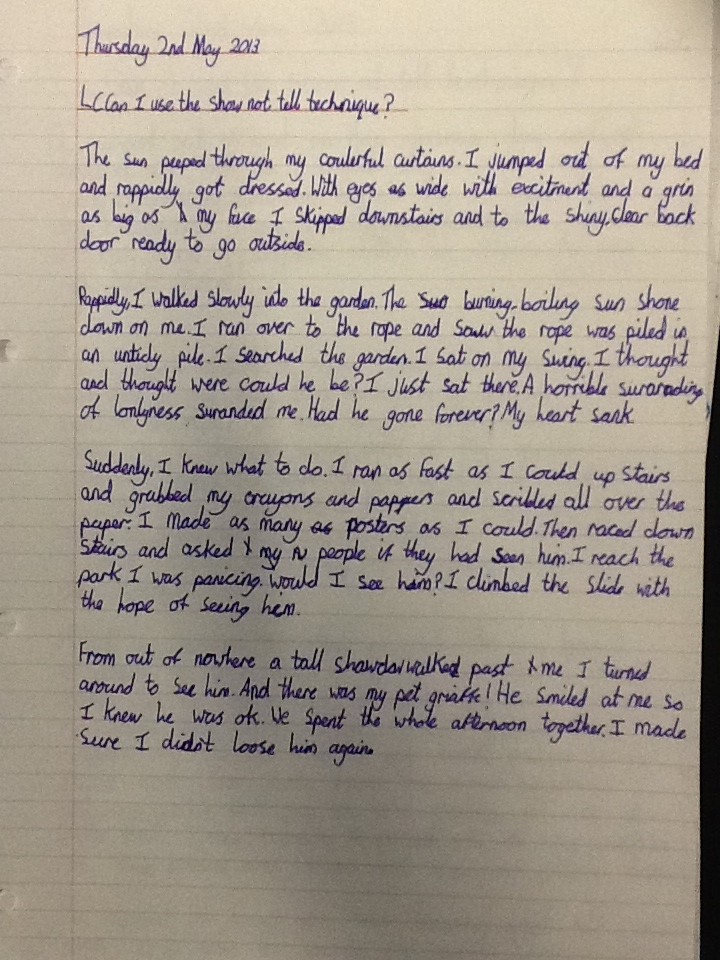 Thursday 2nd May 2013
LC Can I use the show not tell technique?
The sun peeped through my coulerful curtains. I jumped out of my bed
and rappidly got dressed. With eyes as wide with excitment and a grin
as big as my face I skipped downstairs and to the shiny, clear back
door ready to go outside.
Rappidly, I walked slowly into the garden. The burning, boiling sun shone
down on me. I ran over to the rope and saw the rope was piled in
an untidy pile. I searched the garden. I sat on my swing. I thought
and thought were could he be? I just sat there. A horrible
of lonlyness suranded me. Had he gone forever? My heart sank
Suddenly, I knew what to do. I ran as fast as I could up stairs
and grabbed my crayons and pappers and scribled all over the
paper. I made as many as posters as I could. Then raced down
stairs and asked my people if they had seen him. I reach the
park I was panicing. Would I see him? I climbed the slide with
the hope of seeing hem.
From out of nowhere a tall walked past me I turned
around to see him. And there was my pet He smiled at me so
I knew he was ok. We spent the whole afternoon together. I made
sure I didn't loose him again.